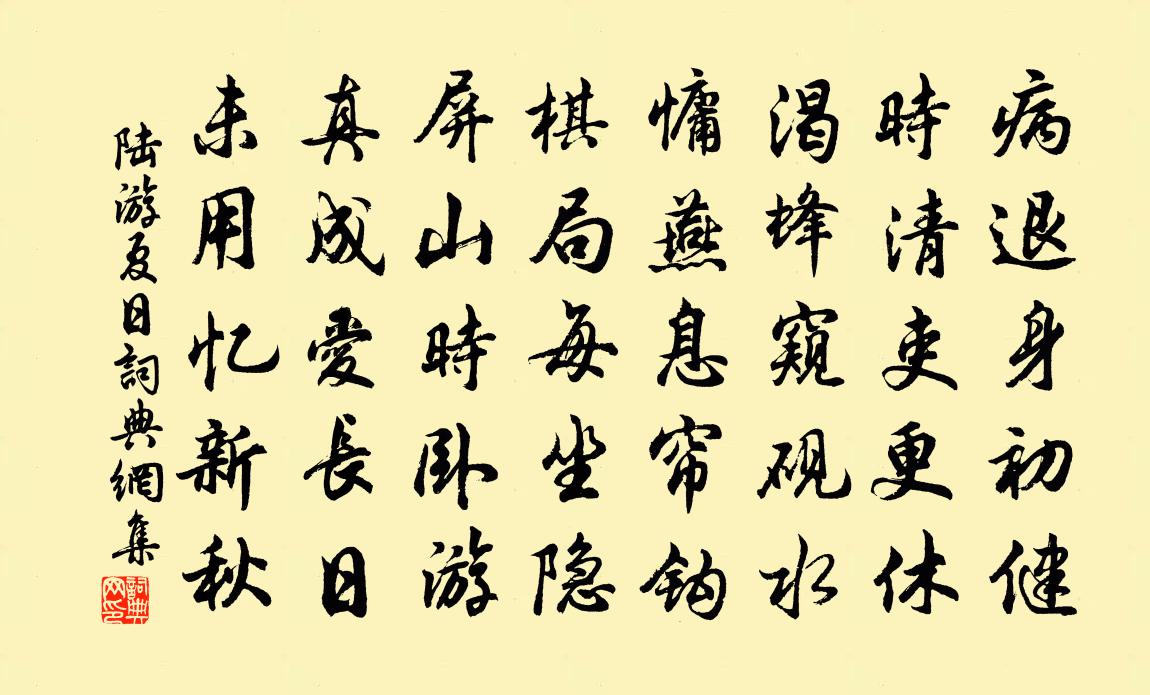 病退身初健
時清吏更休
渴蜂窺硯水
慵燕息帘钩
棋局每坐隐
屏山時卧游
真成愛長日
未用忆新秋
陆游夏日詞典網集
詞典网印